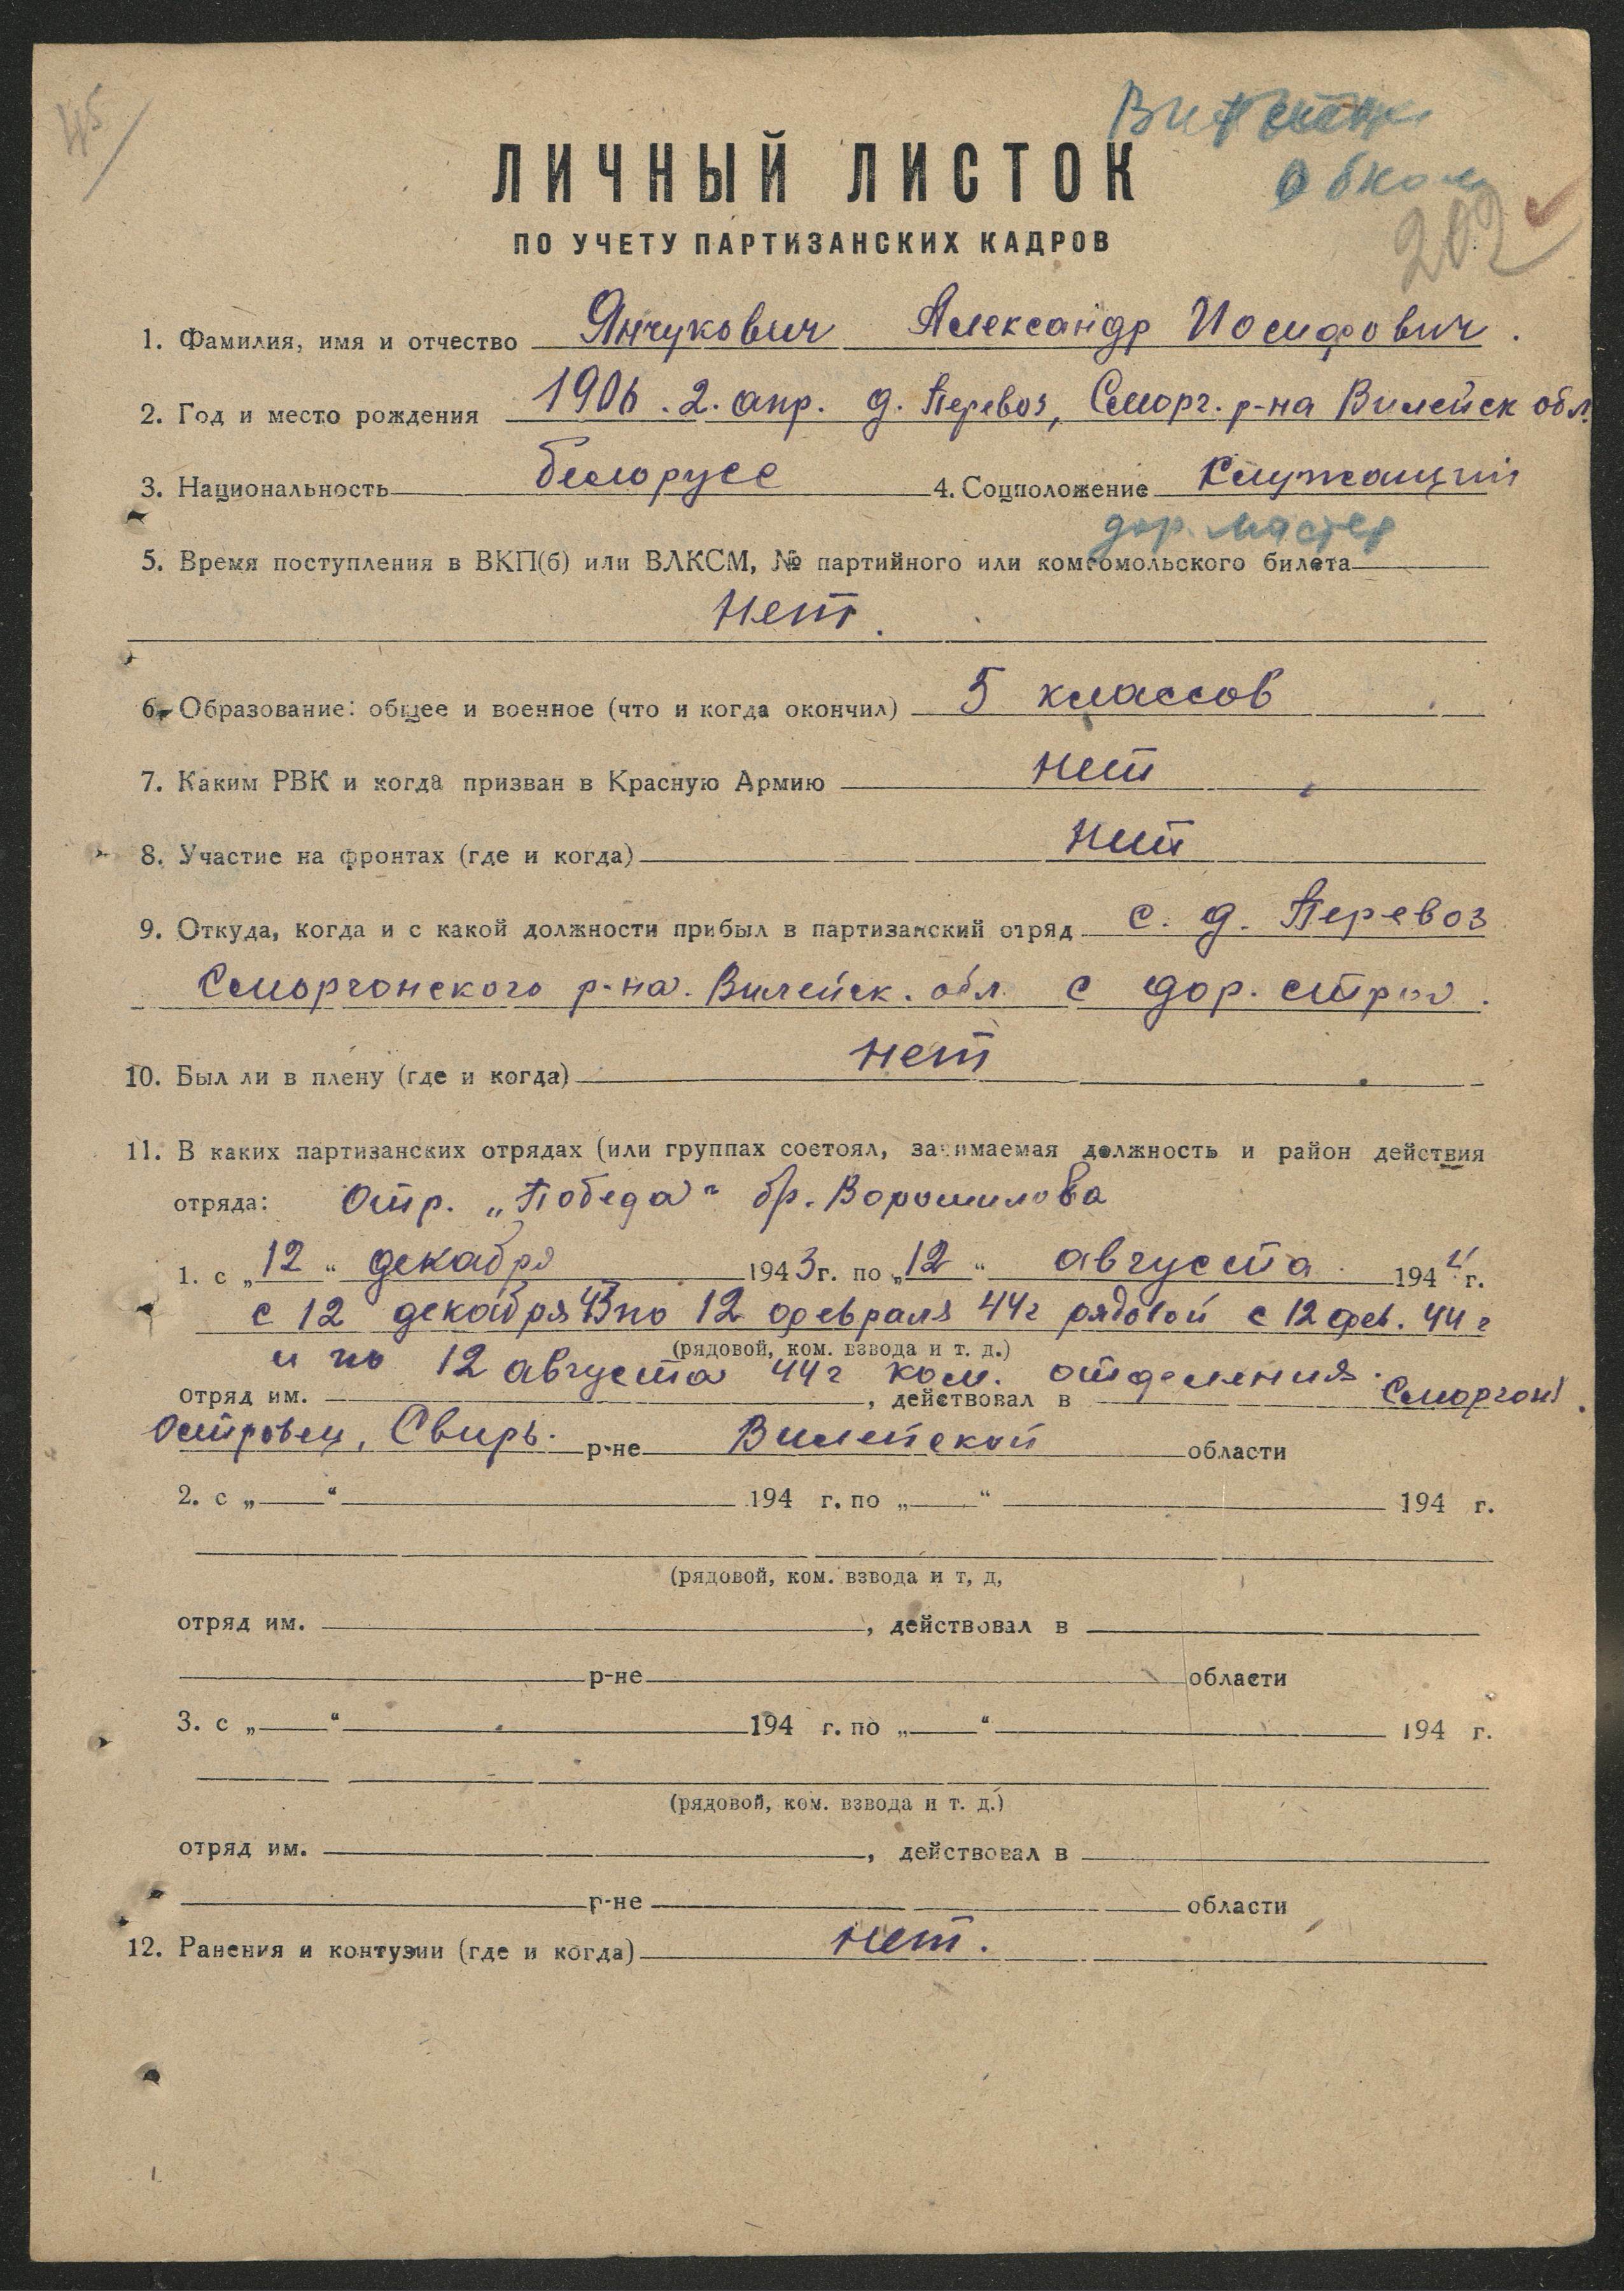 45
Витебск
обком
202
ЛИЧНЫЙ ЛИСТОК
ПО УЧЕТУ ПАРТИЗАНСКИХ КАДРОВ
1. Фамилия, имя и отчество Янчукович Александр Иосифович.
2. Год и место рождения 1906. 2. апр. д. Перевоз, Сморг. р-на Вилейск обл.
3. Национальность белорусс 4. Соцположение Служащий
дор. мастер
5. Время поступления в ВКП(б) или ВЛКСМ, № партийного или комсомольского билета
Нет.
6. Образование: общее и военное (что и когда окончил) 5 классов
7. Каким РВК и когда призван в Красную Армию нет
8. Участие на фронтах (где и когда) нет
9. Откуда, когда и с какой должности прибыл в партизанский отряд с. д. Перевоз
Сморгонского р-на. Вилейск. обл. с дор. строй.
10. Был ли в плену (где и когда) нет
11. В каких партизанских отрядах (или группах состоял, занимаемая должность и район действия
отряда: Отр. „Победа" бр. Ворошилова
1. с „12" декабря 1943 г. по „12" августа 1944 г.
с 12 декабря 43 по 12 февраля 44г рядовой с 12 фев. 44 г
(рядовой, ком. взвода и т. д.)
и по 12 августа 44г ком. отделения.
отряд им. , действовал в Сморгонь.
Островец, Свирь. р-не Вилейской области
2. с „ " 194 г. по „ " 194 г.
(рядовой, ком. взвода и т, д,
отряд им. , действовал в
р-не области
3. с „ " 194 г. по „ " 194 г.
(рядовой, ком. взвода и т. д.)
отряд им. , действовал в
р-не области
12. Ранения и контузии (где и когда) нет.